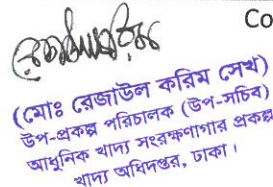 Co
(মোঃ রেজাউল করিম সেখ)
উপ-প্রকল্প পরিচালক (উপ-সচিব)
আধুনিক খাদ্য সংরক্ষণাগার প্রকল্প
খাদ্য অধিদপ্তর, ঢাকা।